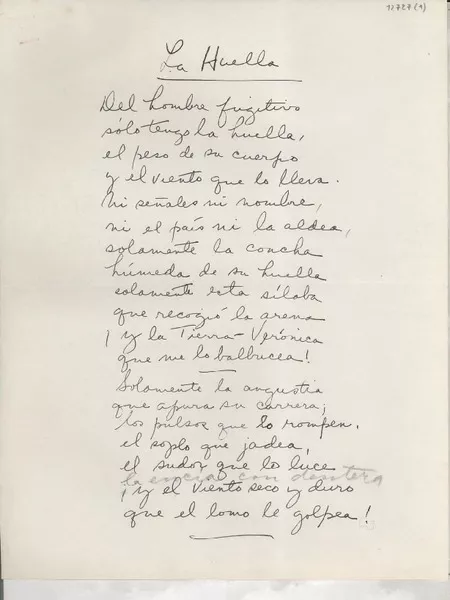 11727 (1)
La Huella
Del hombre fugitivo
sólo tengo la huella,
el peso de su cuerpo
y el viento que lo lleva.
Ni señales ni nombre,
ni el país ni la aldea,
solamente la concha
húmeda de su huella
solamente esta sílaba
que recogió la arena
¡y la Tierra-Verónica
que me lo balbucea!
Solamente la angustia
que apura su carrera;
los pulsos que lo rompen,
el soplo que jadea,
el sudor que lo luce
la encía con dentera
¡y el viento seco y duro
que el lomo le golpea!